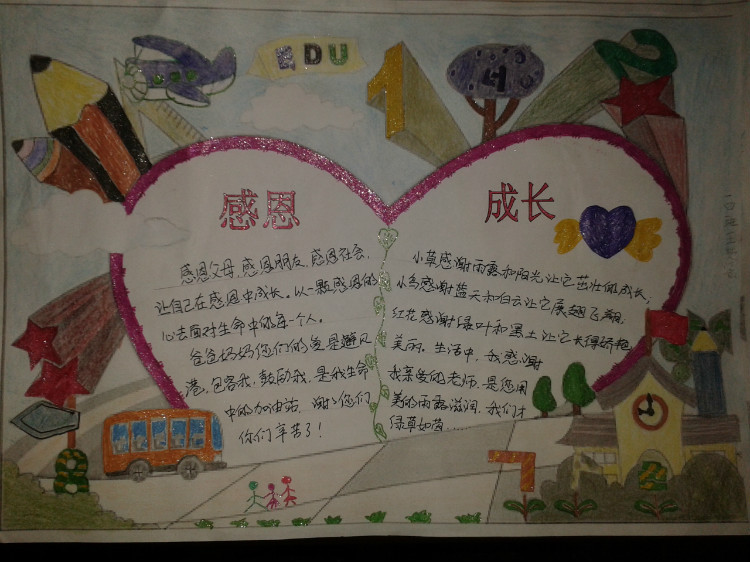 EDU
1
4
2
感恩
感恩父母，感恩朋友，感恩社会，
让自己在感恩中成长。以一颗感恩的
心去面对生命中的每一个人。
爸爸妈妈您们的爱是避风
港，包容我，鼓励我，是我生命
中的加油站，谢谢您们
你们辛苦了！
成长
小草感谢雨露和阳光让它茁壮成长，
小鸟感谢蓝天和白云让它展翅飞翔，
红花感谢绿叶和黑土让它长得娇艳
美丽。生活中，我感谢
我亲爱的老师，是您用
美的雨露滋润，我们才
绿草如茵……
8
7